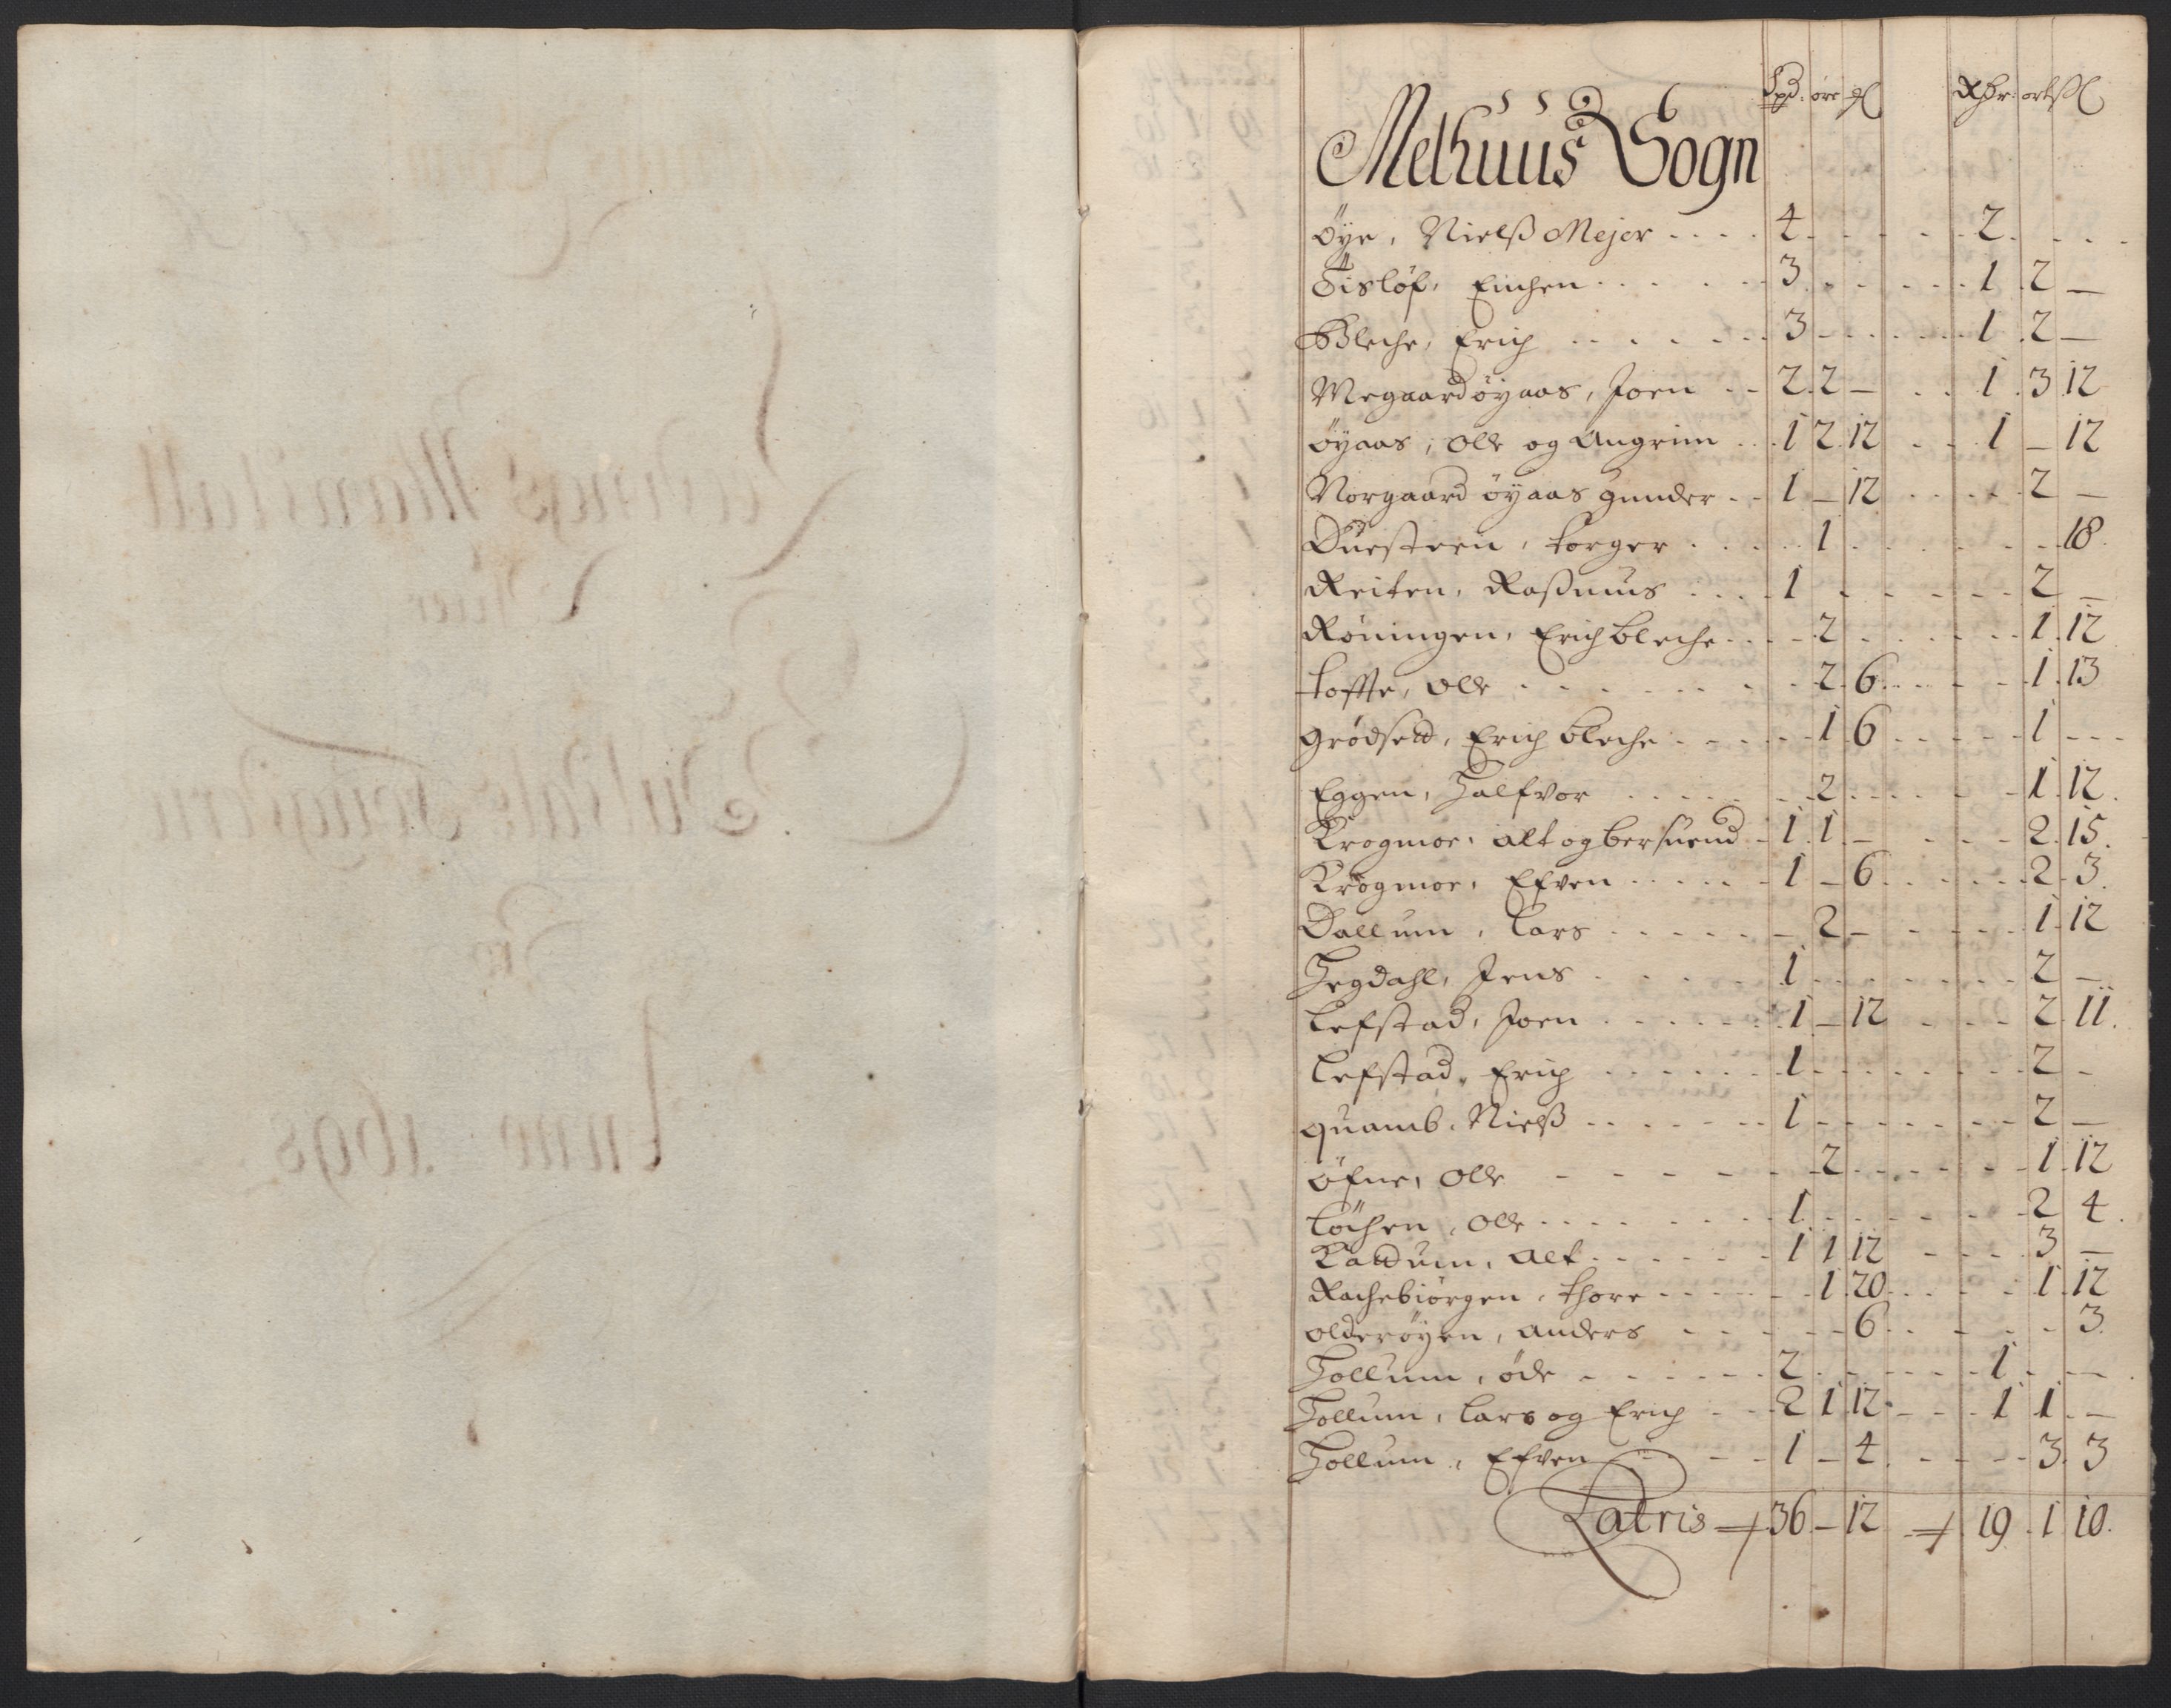 Spd: öre gl Rdr: ort ß
Melhuus Sogn
Öye, Nielß Mejer . . . . 4 . . . . . 2 . . .
Gisløf, Einchen . . . . . 3 . . . . . 1 2 —
Bleche, Erich . . . . . 3 . . . . . 1 2 —
Megaard öyaas, Joen . . 2 2 — . . 1 3 12
Öyaas, Olle og Angrim . . 1 2 12 . . 1 — 12
Norgaard öyaas Gunder . . 1 — 12 . . . . 2 —
Duesteen, Torger . . . . . 1 . . . . . . 18
Reiten, Raßmus . . . . 1 . . . . . 2 —
Röningen, Erich bleche . . . . 2 . . . . . 1 12
Toffte, Olle . . . . . . . 2 6 . . . . 1 13
Grödsed, Erich bleche . . . . . 1 6 . . . . . 1 - - -
Eggen, Halfvor . . . . . . 2 . . . . . 1 12
Krogmoe, Alt og bersuend . 1 1 — . . . 2 15
Krogmoe, Efven . . . . . 1 — 6 . . . . . 2 3
Dallum, Lars . . . . . . — 2 — . . . . 1 12
Hegdahl, Jens . . . . . 1 . . . . . . 2 —
Lefstad, Joen . . . . . . 1 — 12 . . . 2 11
Lefstad, Erich . . . . . . 1 . . . . . . 2 -
Quamb, Nielß . . . . . . 1 . . . . . . 2 —
Öfne, Olle - - - - - - 2 . . . . . 1 12
Löchen, Olle . . . . . . . 1 . . . . . 2 4
Kaldum, Alt . . . . . . 1 1 12 . . . . 3 —
Rachebiörgen, Thore . . . . . . 1 20 . . . . 1 12
Olderöyen, Anders - - - - - 6 . . . . . 3
Hollum, öde - . . . . . 2 . . . . . 1 . - —
Hollum, Lars og Erich . . . 2 1 12 . . . 1 1 —
Hollum, Efven . . . . 1 — 4 . . . . 3 3
Latris 36 — 12 19 1 10